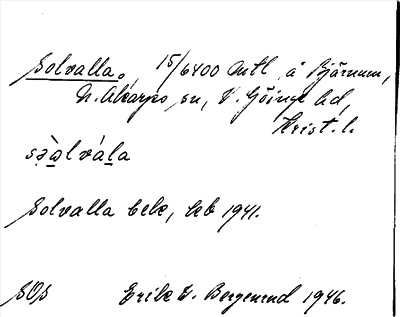 Solvalla, 15/6400 mtl å Bjärnum,
N. Åkarps sn, V. Göinge hd,
Krist. l.
sə̀ạlvála
Solvalla beb, leb 1941.
SOS Erik V. Bergenrud 1946.